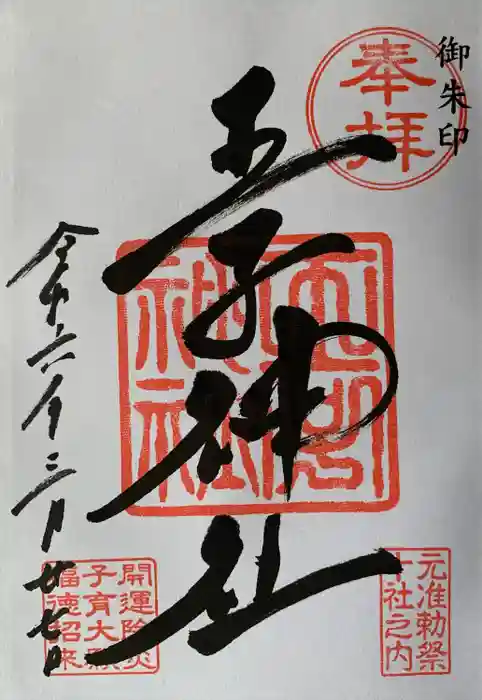 御朱印
奉拝
王子神社
元准勅祭
十社之内
開運除災
子育大願
福徳招来
令和六年三月廿七日